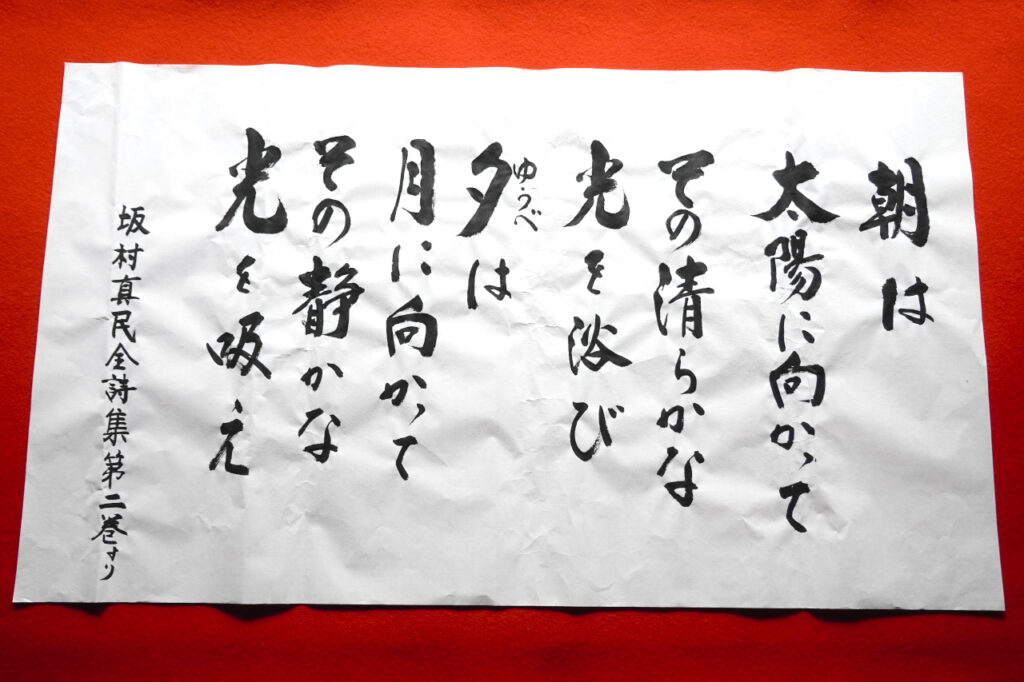 朝は
太陽に向かって
その清らかな
光を浴び
夕は
ゆうべ
月に向かって
その静かな
光を吸え
坂村真民全詩集第二巻より